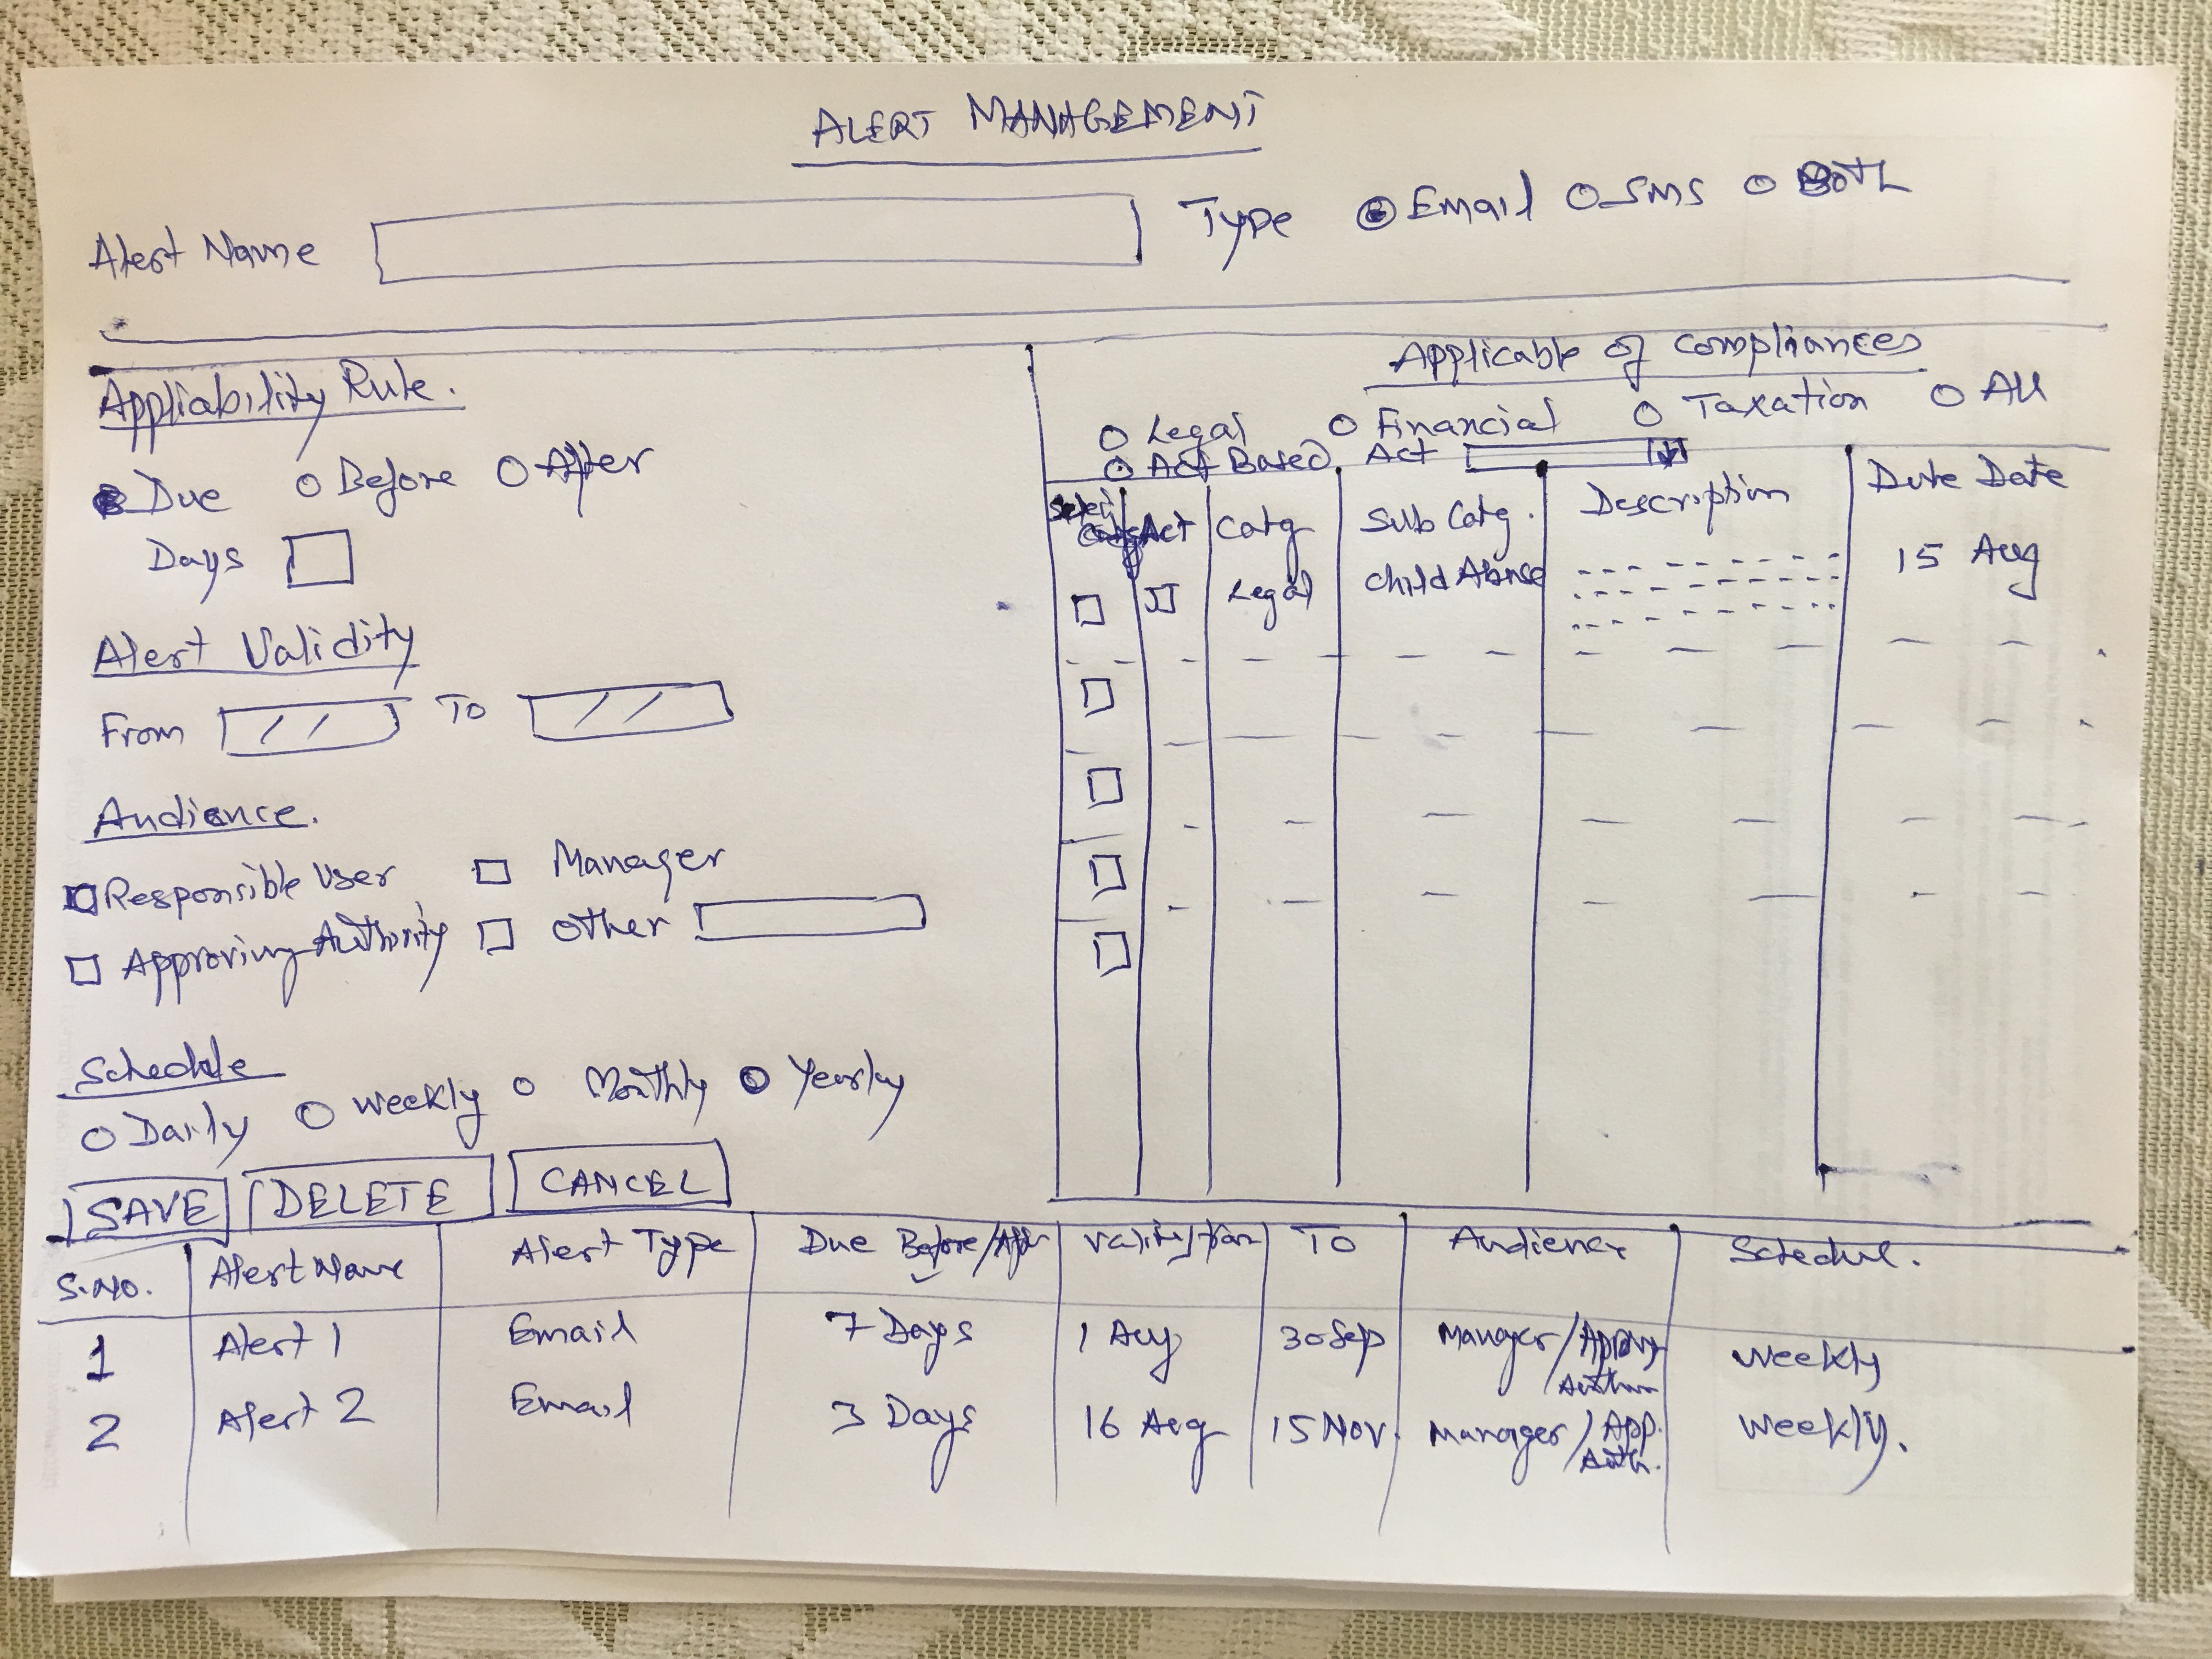 ALERT MANAGEMENT
Alert Name Type Email SMS Both
Appliability Rule.
Due Before After
Days
Alert Validity
From / / To / /
Audience.
Responsible User Manager
Approving Authority Other
Schedule
Daily Weekly Monthly Yearly
SAVE DELETE CANCEL
Applicable of Compliances
Legal Financial Taxation All
Act Based Act
Select Act Catg Sub Catg. Description Due Date
Legal Child Abuse 15 Aug
S.No. Alert Name Alert Type Due Before/Aftr TO Audience Schedul.
1 Alert 1 Email 7 Days 1 Aug 30 Sep Manager/ Weekly
2 Alert 2 Email 3 Days 16 Aug 15 Nov. Manager/App. Auth. Weekly.